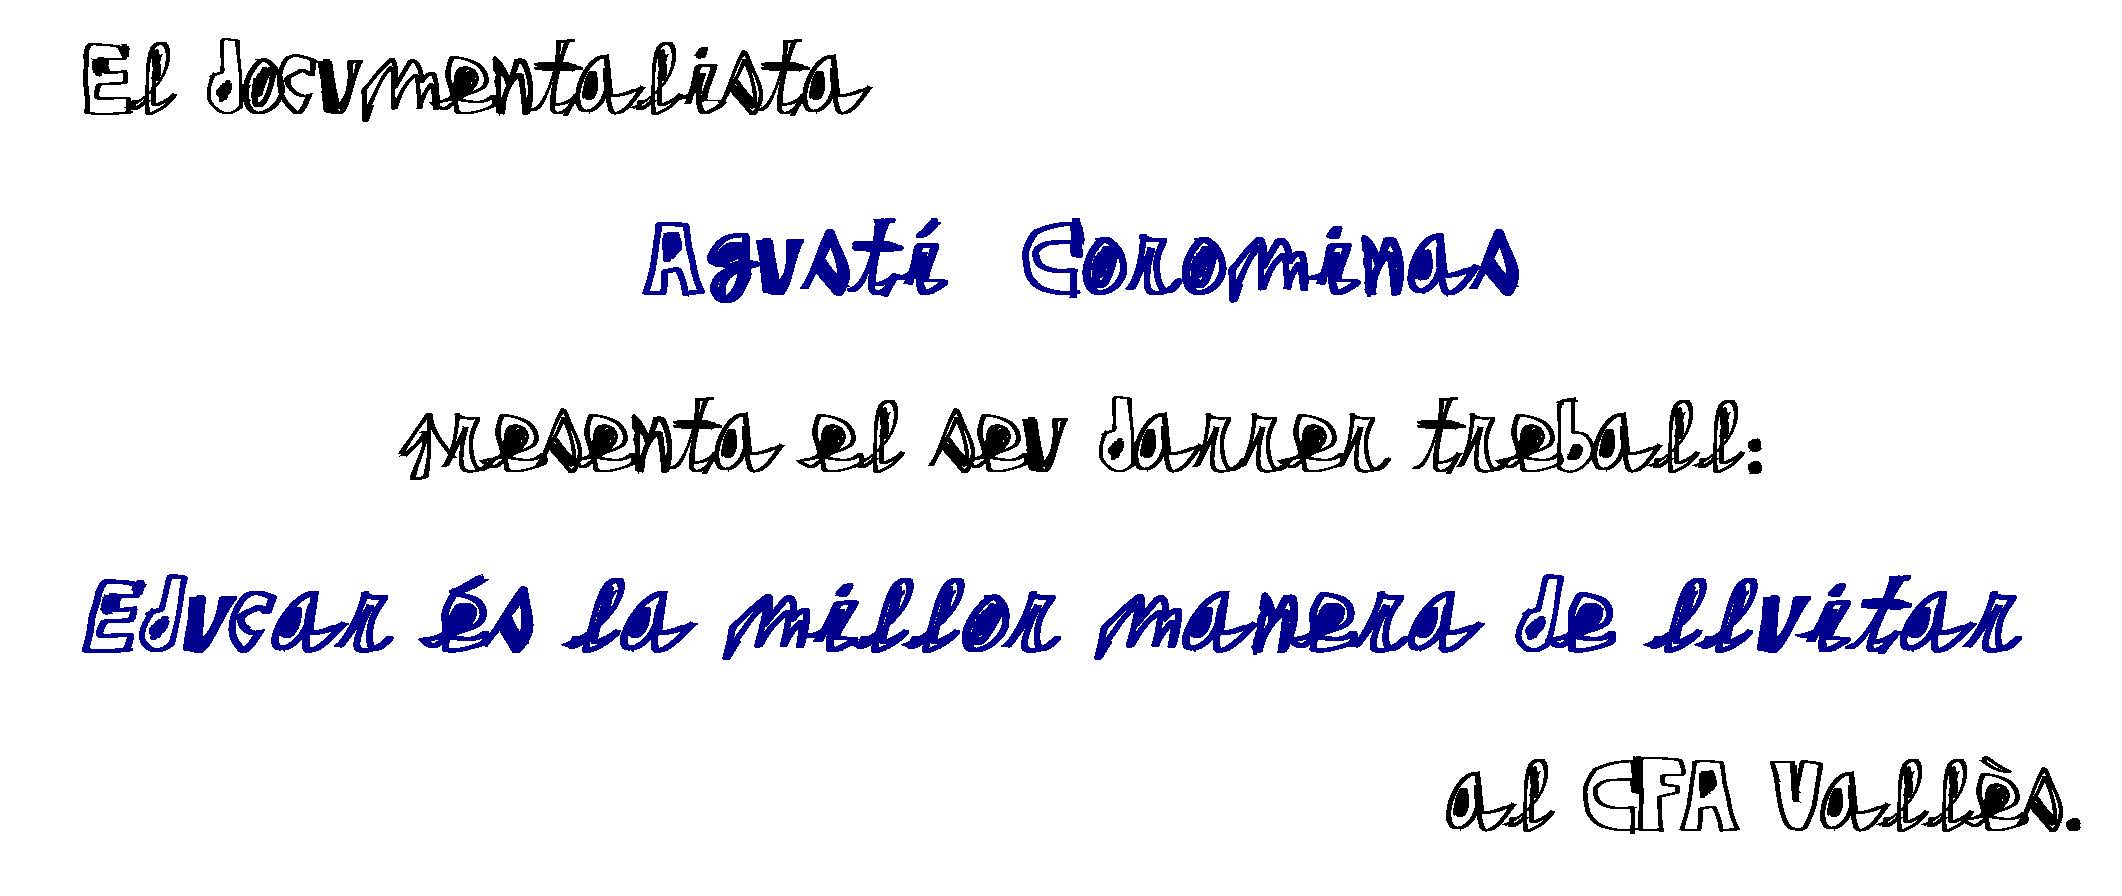 El documentalista
Agustí Corominas
presenta el seu darrer treball:
Educar és la millor manera de lluitar
al CFA Vallès.